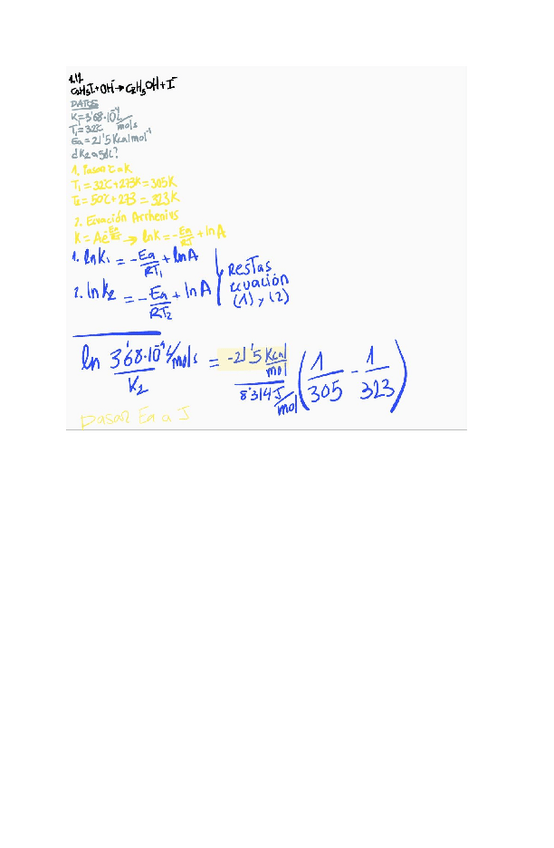 1.17
C2H5I+OH⁻→C2H5OH+I⁻
DATOS
K1=3'68·10⁻⁴ L/mol s
T1=32ºC
Ea=21'5 Kcal mol⁻¹
¿K2 a 50ºC?
1. Paso ºC a K
T1=32ºC+273K=305K
T2=50ºC+273=323K
2. Ecuación Arrhenius
K=Ae → lnK=-Ea/RT+lnA
1. lnK1=-Ea/RT1+lnA
2. lnK2=-Ea/RT2+lnA
Restas
ecuación
(1) y (2)
ln 3'68·10⁻⁴ L/mol s / K2 = -21'5 Kcal/mol / 8'314 J/mol (1/305 - 1/323)
Pasar Ea a J